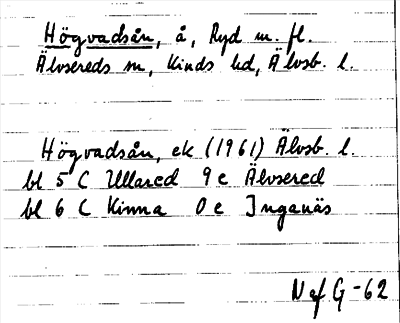 Högvadsån, å, Ryd m. fl.
Älvsereds sn, Kinds hd, Älvsb. l.
Högvadsån, ek (1961) Älvsb. l.
bl 5 C Ullared 9 e Älvsered
bl 6 C Kinna 0 e Inganäs
N ef G-62